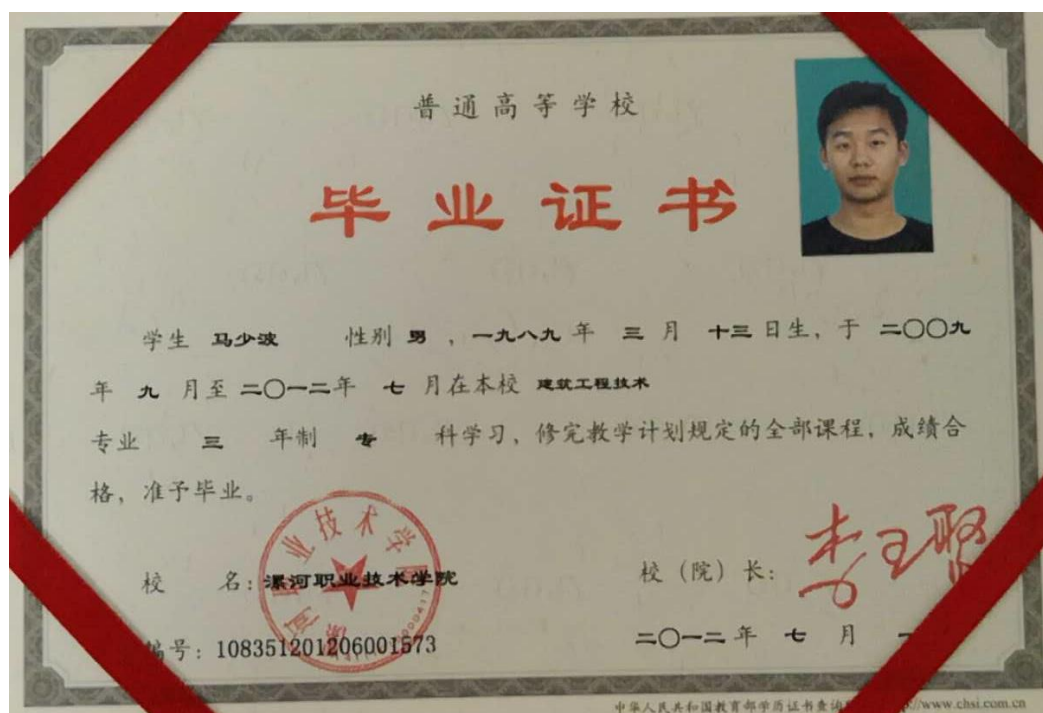 普通高等学校
毕业证书
学生 马少波 性别 男 ，一九八九 年 三 月 十三 日生，于 二〇〇九
年 九 月至 二〇一二 年 七 月在本校 建筑工程技术
专业 三 年制 专 科学习，修完教学计划规定的全部课程，成绩合
格，准予毕业。
业技术学
校 名：漯河职业技术学院
校（院）长：
编号：108351201206001573
二〇一二 年 七 月 一
中华人民共和国教育部学历证书查询 //www.chsi.com.cn